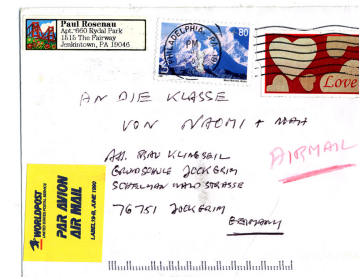 Paul Rosenau
Apt. 660 Rydal Park
1515 The Fairway
Jenkintown, PA 19046
PHILADELPHIA PA
PM
80
Love
AN DIE KLASSE
VON NAOMI +
AIRMAIL
GRUNDSCHULE JOCKGRIM
76751 JOCKGRIM
GERMANY
WORLDPOST
UNITED STATES POSTAL SERVICE
PAR AVION
AIR MAIL
LABEL 19-B, JUNE 1990